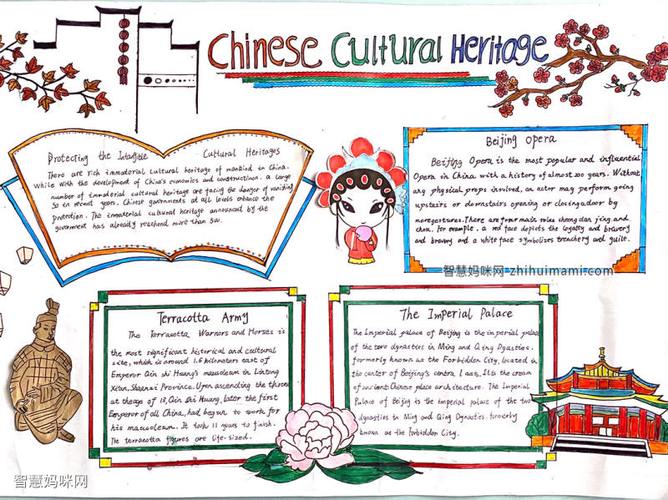 Chinese Cultural Heritage
Protecting the Intangible Cultural Heritages
There are rich immaterial cultural heritage of mankind in China.
While with the development of China's economics and construction, a large
number of immaterial cultural heritage are facing the danger of
So in recent years. Chinese governments at all levels enhance the
Protection. The immaterial cultural heritage announced by the
government has already reached more than
Beijing opera
Beijing Opera is the most popular and influential
Opera in China with a history of almost 200 years. Without
any physical props involved, an actor may perform going
upstairs or downstairs opening or closing a door by
mere gestures. There are four main roles sheng dan jing and
chou. For example. a red face depicts the loyalty and bravery
and bravery and a white face symbolizes treachery and guilt.
智慧妈咪网-zhihuimami.com
Terracotta Army
The Terracotta Warriors and Horses is
the most significant historical and cultural
site, which is around 1.5 kilometers east of
Emperor Qin shi Huang's mausoleum in Lintong
Xi'an, Shaanxi Province. Upon ascending the throne
at the age of 13, Qin Shi Huang, later the first
Emperor of all China, had begun to work for
his mausoleum. It took 11 years to finish.
The terracotta figures are life-sized.
The Imperial Palace
The Imperial palace of Beijing is the imperial palace
of the two dynasties in Ming and Qing Dynasties.
formerly known as the Forbidden City, located
in the center of Beijing's central axis, It is the cream
of ancient Chinese palace architecture. The Imperial
Palace of Beijing is the imperial palace of the two
dynasties in Ming and Qing Dynasties. formerly
known as the Forbidden City.
智慧妈咪网